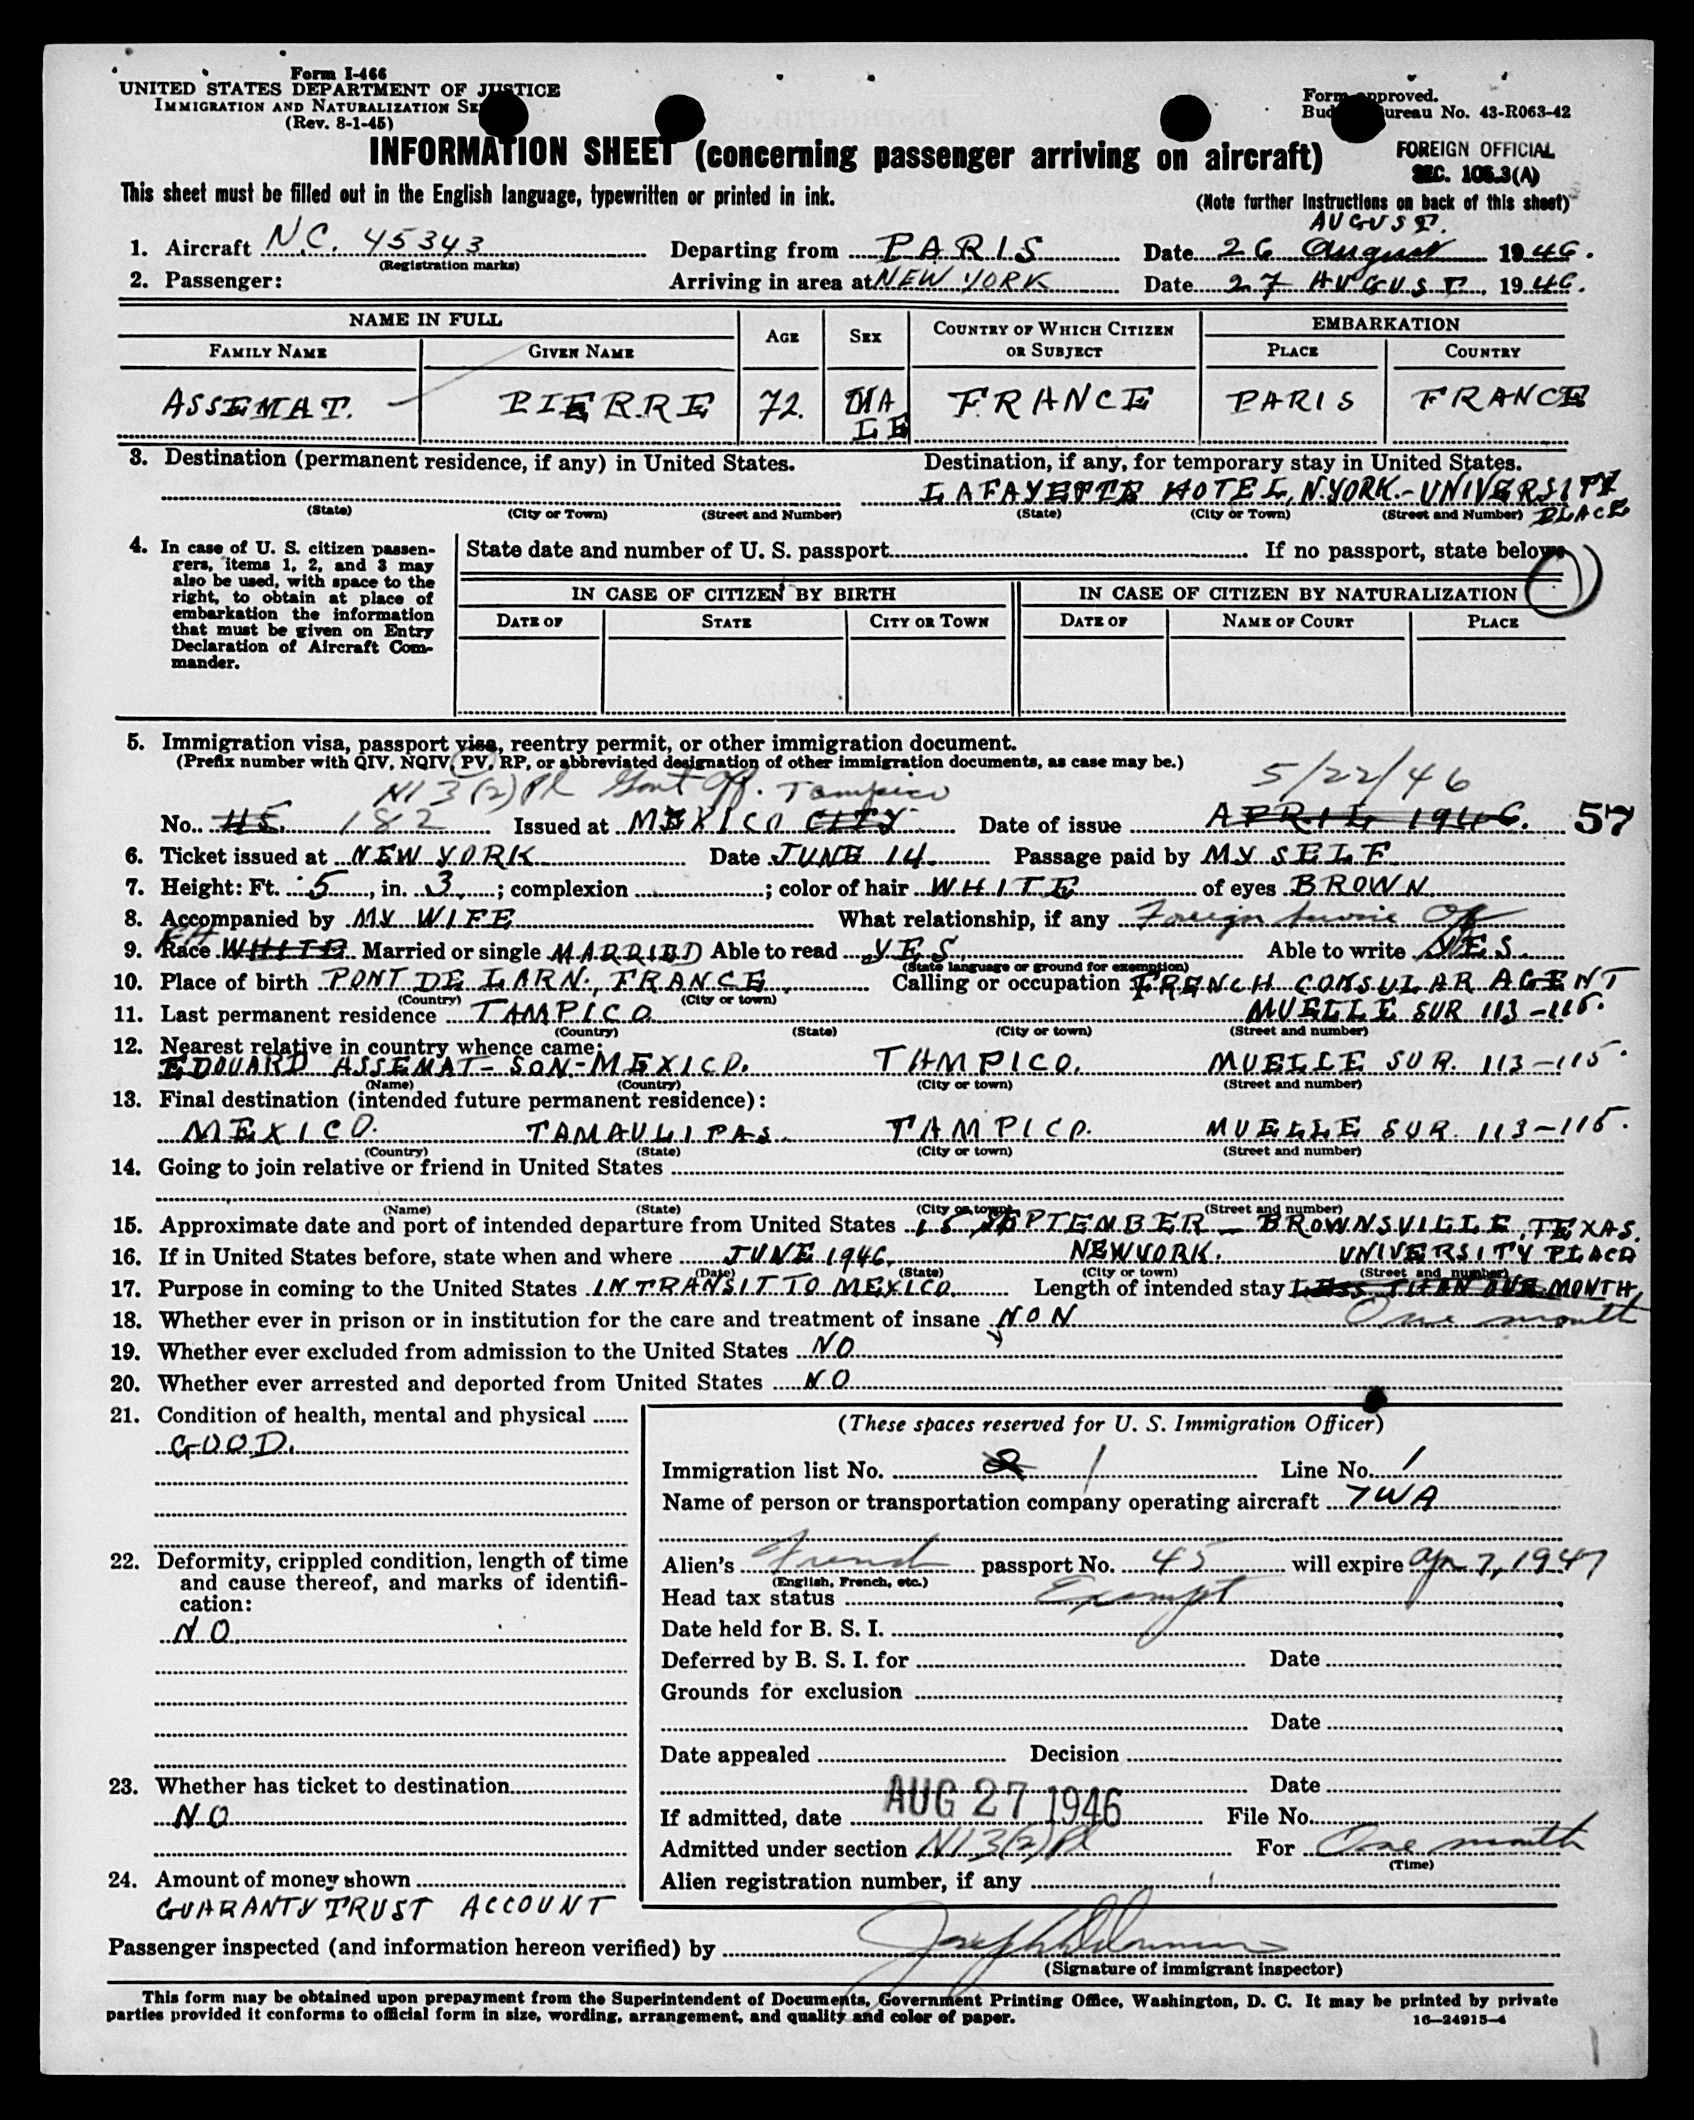 Form I-466
UNITED STATES DEPARTMENT OF JUSTICE
IMMIGRATION AND NATURALIZATION
(Rev. 8-1-45)
Form approved.
Budget Bureau No. 43-R063-42
INFORMATION SHEET (concerning passenger arriving on aircraft)
FOREIGN OFFICIAL
SEC. 105.3(A)
This sheet must be filled out in the English language, typewritten or printed in ink.
(Note further instructions on back of this sheet)
AUGUST.
1. Aircraft N.C. 45343 Departing from PARIS Date 26 August 1946.
(Registration marks)
2. Passenger: Arriving in area at NEW YORK Date 27 AUGUST, 1946.
NAME IN FULL AGE SEX COUNTRY OF WHICH CITIZEN OR SUBJECT EMBARKATION
FAMILY NAME GIVEN NAME PLACE COUNTRY
ASSEMAT. PIERRE 72. MALE FRANCE PARIS FRANCE
3. Destination (permanent residence, if any) in United States. Destination, if any, for temporary stay in United States.
LAFAYETTE HOTEL, N.YORK.-UNIVERSITY PLACE
(State) (City or Town) (Street and Number) (State) (City or Town) (Street and Number)
4. In case of U. S. citizen passengers, items 1, 2, and 3 may also be used, with space to the right, to obtain at place of embarkation the information that must be given on Entry Declaration of Aircraft Commander.
State date and number of U. S. passport If no passport, state below:
IN CASE OF CITIZEN BY BIRTH IN CASE OF CITIZEN BY NATURALIZATION
DATE OF STATE CITY OR TOWN DATE OF NAME OF COURT PLACE
5. Immigration visa, passport visa, reentry permit, or other immigration document.
(Prefix number with QIV, NQIV, PV, RP, or abbreviated designation of other immigration documents, as case may be.)
NI 3(2) Pl Govt Off. Tampico 5/22/46
No. 45 182 Issued at MEXICO CITY Date of issue APRIL 1946. 57
6. Ticket issued at NEW YORK Date JUNE 14. Passage paid by MY SELF
7. Height: Ft. 5, in. 3; complexion ; color of hair WHITE of eyes BROWN
8. Accompanied by MY WIFE What relationship, if any Foreign Service Of
9. Race WHITE Married or single MARRIED Able to read YES Able to write YES
(State language or ground for exemption)
10. Place of birth PONT DE LARN., FRANCE Calling or occupation FRENCH CONSULAR AGENT
(Country) (City or town)
11. Last permanent residence TAMPICO MUELLE SUR 113-115.
(Country) (State) (City or town) (Street and number)
12. Nearest relative in country whence came:
EDOUARD ASSEMAT- SON-MEXICO. TAMPICO. MUELLE SUR. 113-115.
(Name) (Country) (City or town) (Street and number)
13. Final destination (intended future permanent residence):
MEXICO. TAMAULIPAS. TAMPICO. MUELLE SUR. 113-115.
(Country) (State) (City or town) (Street and number)
14. Going to join relative or friend in United States
(Name) (State) (City or town) (Street and number)
15. Approximate date and port of intended departure from United States 15 SEPTEMBER - BROWNSVILLE, TEXAS.
16. If in United States before, state when and where JUNE 1946. NEWYORK. UNIVERSITY PLACE
(Date) (State) (City or town) (Street and number)
17. Purpose in coming to the United States IN TRANSIT TO MEXICO. Length of intended stay LESS THAN ONE MONTH,
One month
18. Whether ever in prison or in institution for the care and treatment of insane NON
19. Whether ever excluded from admission to the United States NO
20. Whether ever arrested and deported from United States NO
21. Condition of health, mental and physical
GOOD.
22. Deformity, crippled condition, length of time and cause thereof, and marks of identification:
NO.
23. Whether has ticket to destination
NO
24. Amount of money shown
GUARANTY TRUST ACCOUNT
(These spaces reserved for U. S. Immigration Officer)
Immigration list No. 1 Line No. 1
Name of person or transportation company operating aircraft TWA
Alien's French passport No. 45 will expire Apr 7, 1947
(English, French, etc.)
Head tax status Exempt
Date held for B. S. I.
Deferred by B. S. I. for Date
Grounds for exclusion
Date
Date appealed Decision
Date
If admitted, date AUG 27 1946 File No.
Admitted under section NI 3(2) Pl For One month
(Time)
Alien registration number, if any
Passenger inspected (and information hereon verified) by
(Signature of immigrant inspector)
This form may be obtained upon prepayment from the Superintendent of Documents, Government Printing Office, Washington, D. C. It may be printed by private
parties provided it conforms to official form in size, wording, arrangement, and quality and color of paper.
16-24915-4